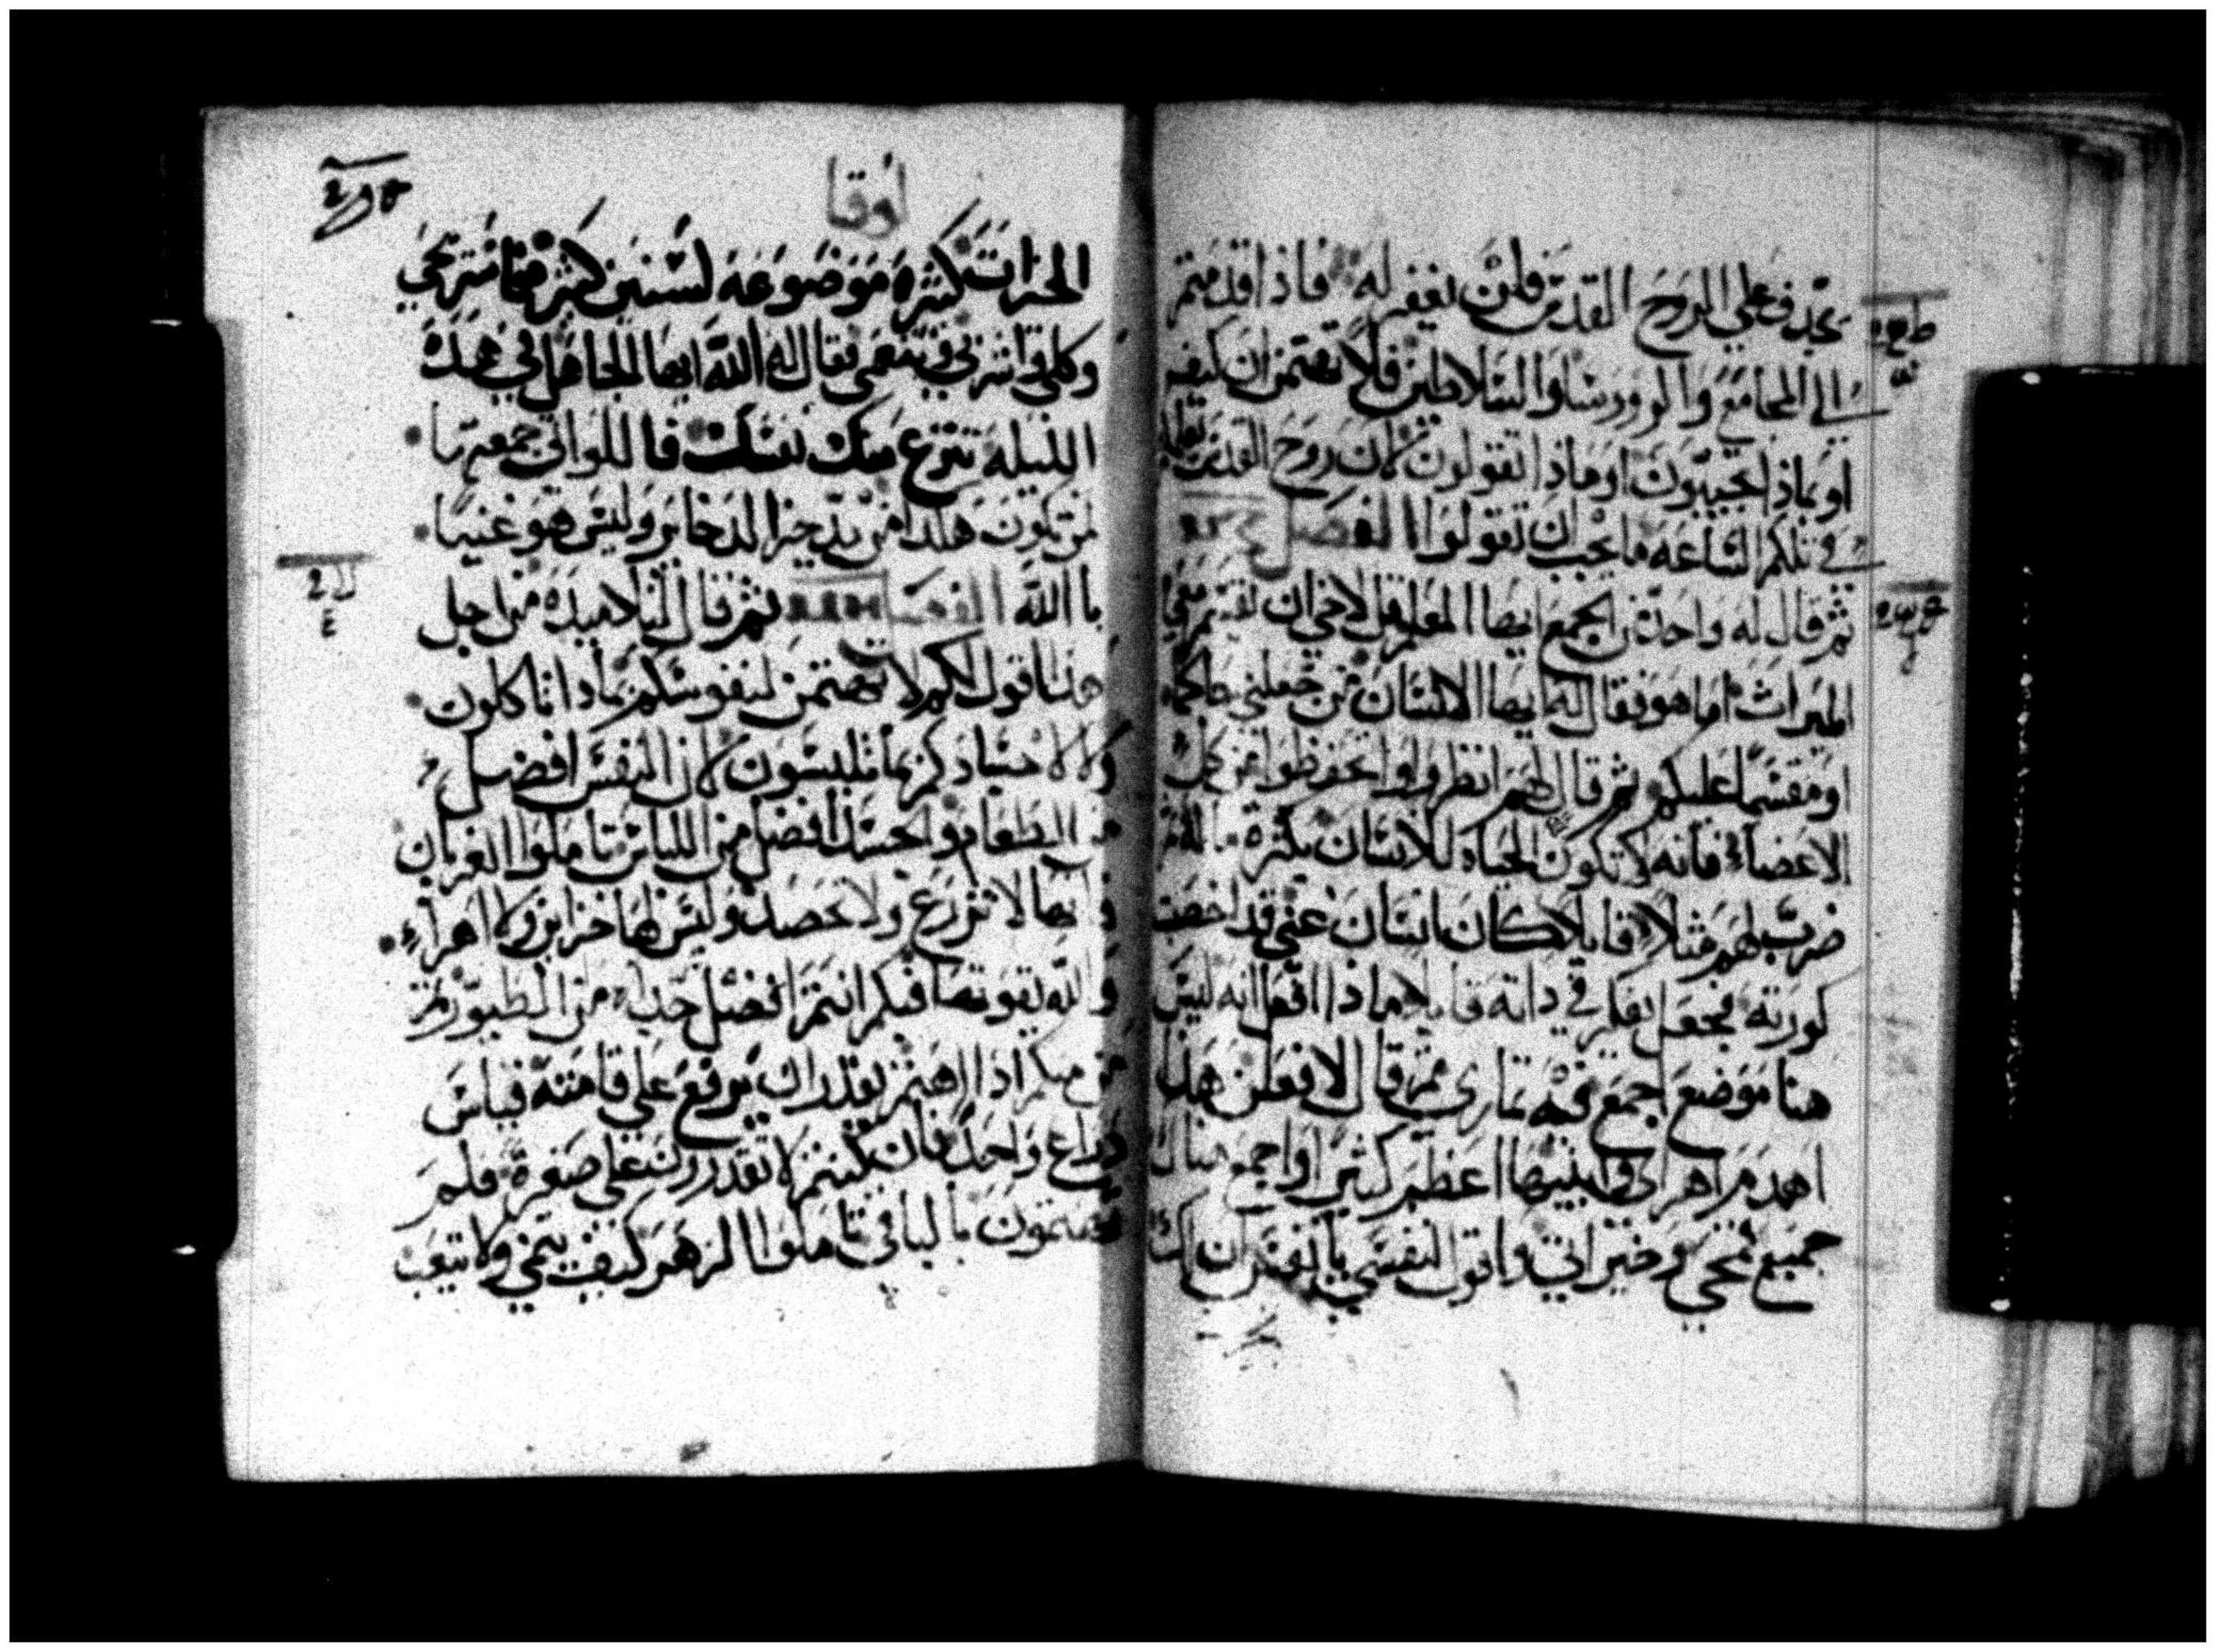 يجدف علي الروح القدس فلن يغفر له فاذا قدمتم
الي المجامع والروورسا والسلاطين فلا تهتمن ان كيف
او بماذا تجيبون او ماذا تقولون لان روح القدس
في تلكم الساعه ما يجب ان تقولوا الفصل
ثم قال له واحد من الجمع ايها المعلم قل لاخي ان يقسم معي
الميراث اما هو فقال له ايها الانسان من جعلني حاكما
او مقسما عليكم ثم قال لهم انظروا واحتفظوا من كل
فانه لا تكون الحياه للانسان بكثرة ماله
ضرب لهم مثلا قايلا كان انسان غني قد اخصبت
كورته فجعل يفكر في ذاته قايلا ماذا افعل انه ليس
هنا موضع اجمع فيه ثماري ثم قال لافعلن هذا
اهدم اهراي وابنيها اعظم كثيرا واجمع هناك
جميع قمحي وخيراتي واقول لنفسي يا نفس ان لك
لوقا
الخيرات كثيره موضوعه لسنين كثيره فاستريحي
وكلي واشربي وتنعمي فقال له الله ايها الجاهل في هذه
الليله تنتزع منك نفسك فاللواتي جمعتها
لمن تكون هكذا من يدخر الدخاير وليس هو غنيا
با الله ثم قال لتلاميذه من اجل
هذا اقول لكم لا تهتمن لنفوسكم بماذا تاكلون
ولا لاجسادكم بما تلبسون لان النفس افضل
من الطعام والجسد افضل من اللباس تاملوا الغربان
انها لا تزرع ولا تحصد وليس لها خزاين ولا اهراء
والله يقوتها فكم انتم افضل من الطيور من
منكم اذا اهتم يقدر ان يرفع علي قامته قياس
ذراع واحد فان كنتم لا تقدرون علي صغيرة فلم
تهتمون بالباقي تاملوا الزهر كيف ينمي ولا يتعب